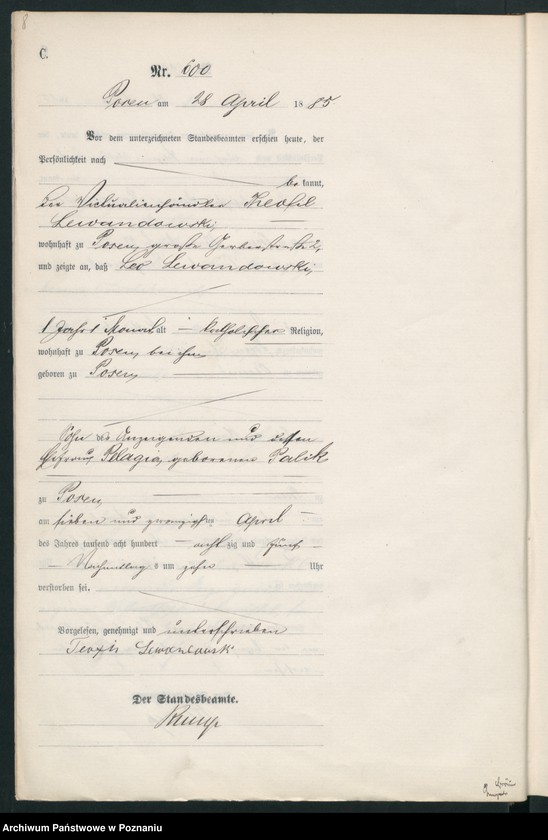 8
C.
Nr. 600
Posen am 28 April 1885
Vor dem unterzeichneten Standesbeamten erschien heute, der
Persönlichkeit nach
bekannt,
der Victualienhändler Teofil
Lewandowski,
wohnhaft zu Posen, große Gerberstraße 2,
und zeigte an, daß Leo Lewandowski,
1 Jahr 1 Monat alt katholischer Religion,
wohnhaft zu Posen, bei ihm
geboren zu Posen,
Sohn des Anzeigenden und dessen
Ehefrau Pelagia, geborenen Palik
zu Posen,
am sieben und zwanzigsten April
des Jahres tausend acht hundert achtzig und fünf
Nachmittags um zehn Uhr
verstorben sei.
Vorgelesen, genehmigt und unterschrieben
Teofil Lewandowski
Der Standesbeamte.
Archiwum Państwowe w Poznaniu